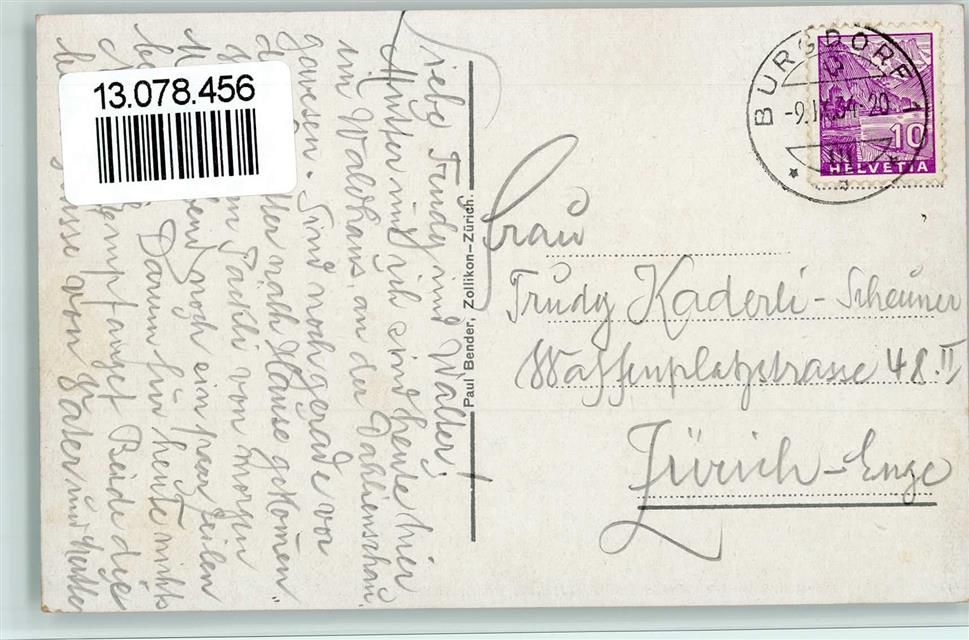 13.078.456
BURGDORF 1
-9.IX.34-20
10
HELVETIA
Paul Bender, Zollikon-Zürich.
Frau
Trudy Käderli-Scheuner
Waffenplatzstrasse 48.II
Zürich-Enge
Liebe Trudy und Walter!
Mutter und ich sind heute hier
im Waldhaus an der Dahlienschau
gewesen. Sind noch gerade vor
nach Hause gekommen
von morgen
noch ein paar Zeilen
Darum für heute nichts
empfanget Beide die
von Vater und Mutter